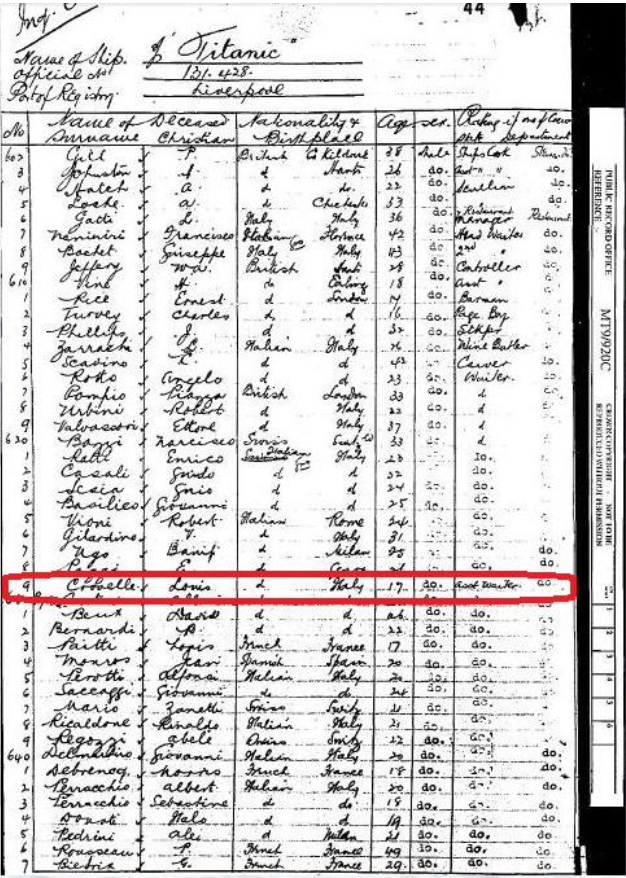 44
Name of Ship. "Titanic"
Official No 131.428.
Port of Registry. Liverpool
No Name of Deceased Nationality & Age Sex. Rating if one of Crew
Surname Christian Birthplace Department
602 Gill P. British G Kildare 38 Male Ships Cook
3 Johnston J. d Hants 26 do. Asst " " do.
4 Hatch A d do. 22 do. Scullion do.
5 Loche. a. d Chichester 33 do. do.
6 Gatti L. Italy Italy 36 do. Restaurant Manager Restaurant
7 Naninini Francisco Italian Florence 42 do. Head Waiter do.
8 Bochet Giuseppe Italy Italy 43 do. 2nd do. do.
9 Jeffery W.A. British Hants 28 do. Controller do.
610 Vine H. do Ealing 18 do. Asst " do.
1 Rice Ernest d London 17 do. Barman do.
2 Turvey Charles d d 16 do. Page Boy do.
3 Phillips J. d d 32 do. Stkpr do.
4 Zarrachi L. Italian Italy 26 do. Wine Butler do.
5 Scavino C. d d 42 do. Carver do.
6 Roko Angelo d d 23 do. Waiter. do.
7 Pompio Piazza British London 33 do. d
8 Urbini Robert d Italy 22 do. d
9 Valvassori Ettore d Italy 37 do. d
620 Bazzi Narcisco Swiss 33 do. d
1 Ratti Enrico Italian Italy 23 do.
2 Casali Guido d d 32 do.
3 Scsia Gnio d d 24 do. do.
4 Basilico Giovanni d d 25 do. do.
5 Vioni Robert Italian Rome 24 do.
6 Gilardino V. d Italy 31 do.
7 Ugo Banif d Milan 25 do. do.
8 do.
9 Crovelle Louis d Italy 17 do. Asst Waiter do.
1 Beux David d d 26 do. do.
2 Bernardi B. d d 22 do. do. do.
3 Paitti Louis French France 17 do. do. do.
4 Monros Jean Spanish Spain 20 do. do. do.
5 Perotti Alfonsi Italian Italy 20 do. do. do.
6 Saccaggi Giovanni do do. 24 do. do. do.
7 Mario Zanetti Swiss Switz 21 do. do. do.
8 Ricaldone Rinaldo Italian Italy 21 do. do. do.
9 Pegozzi Abele Swiss Switz 22 do. do. do.
640 Giovanni Italian Italy 20 do. do. do.
1 Debrenog French France 18 do. do. do.
2 Perracchio Albert Italian Italy 20 do. do. do.
3 Perracchio Sebastine d do 18 do. do. do.
4 Donati Italo d d 19 do. do. do.
5 Pedrini Alei d Milan 21 do. do. do.
6 Rousseau P. French France 49 do. do. do.
7 Bietrix G. French France 29. do. do. do.
PUBLIC RECORD OFFICE
REFERENCE :-
MT9/920C
CROWN COPYRIGHT - NOT TO BE
REPRODUCED WITHOUT PERMISSION
1
2
3
4
5
6